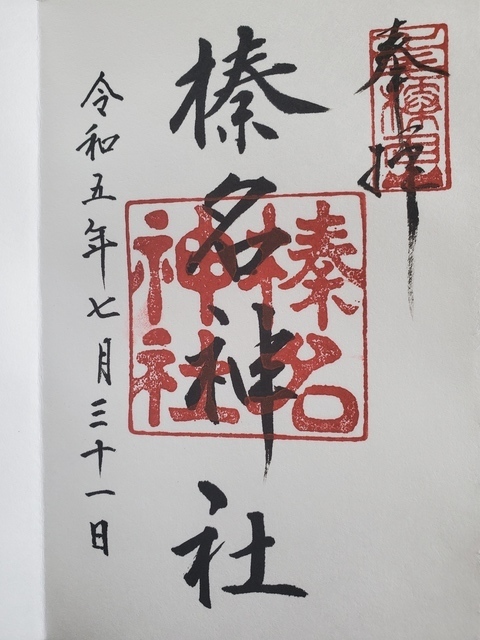 奉拝
榛名神社
榛名
神社
令和五年七月三十一日